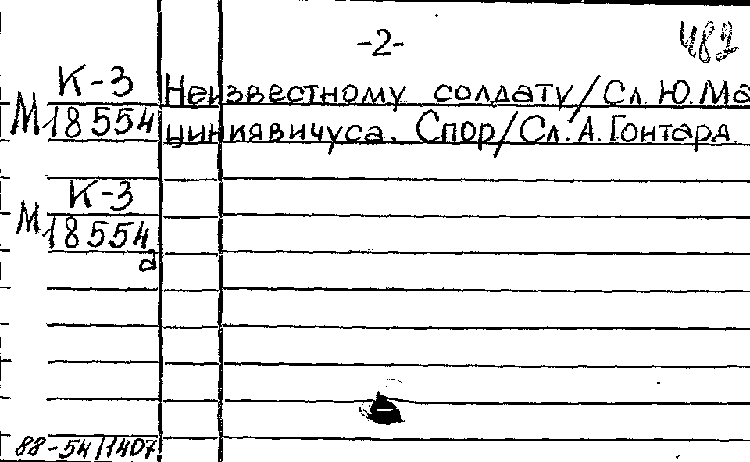 -2-
482
К-3
М18554
Неизвестному солдату/Сл. Ю. Ма
циниявичуса. Спор/Сл. А. Гонтаря
К-3
М18554
а
88-54/1407